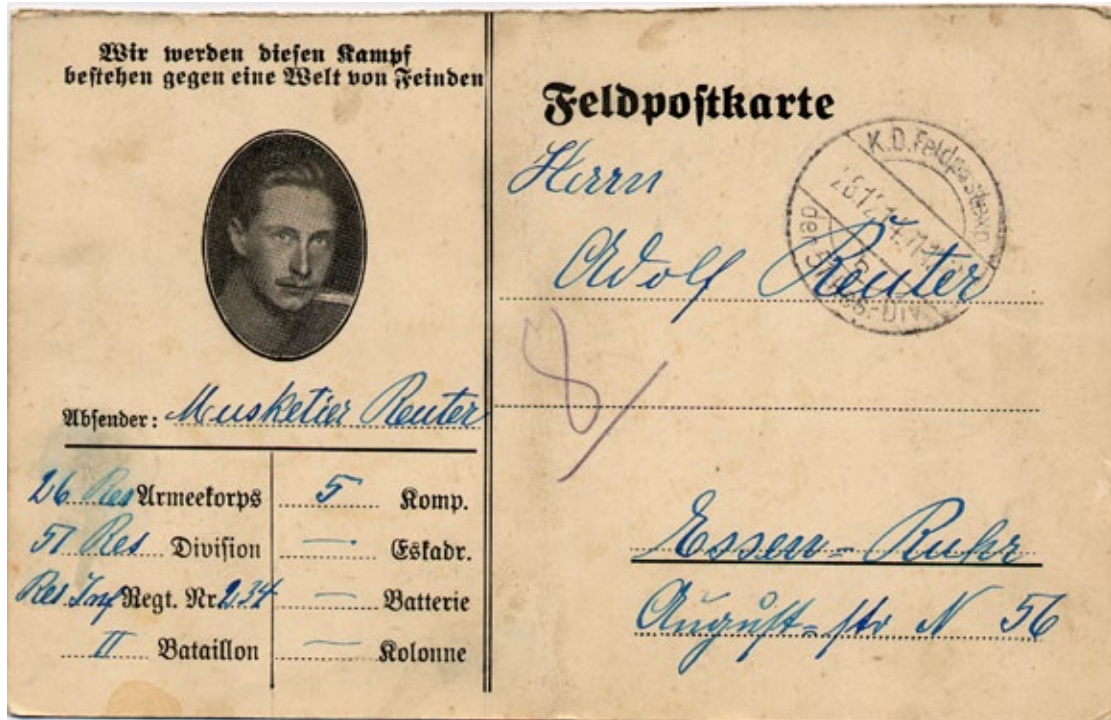 Wir werden diesen Kampf
bestehen gegen eine Welt von Feinden
Absender: Musketier Reuter
26 Res Armeekorps
51 Res Division
Res Inf Regt. Nr 234
II Bataillon
5 Komp.
— Eskadr.
— Batterie
— Kolonne
Feldpostkarte
K.D. Feldpostexp.
der 51. Res.-Div.
Herrn
Adolf Reuter
Essen-Ruhr
August-str N 56